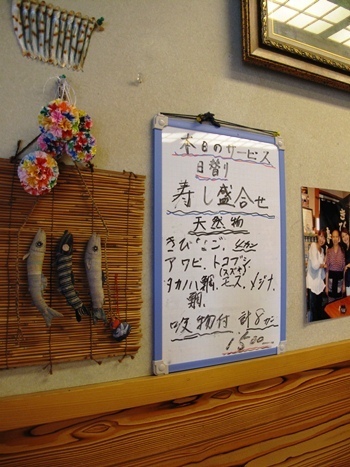 本日のサービス
日替り
寿し盛合せ
天然物
きびなご、
アワビ、トコブシ
(スズキ)
タカノハ鯛、モス、メジナ
鯛、
吸物付 計8カン
1500